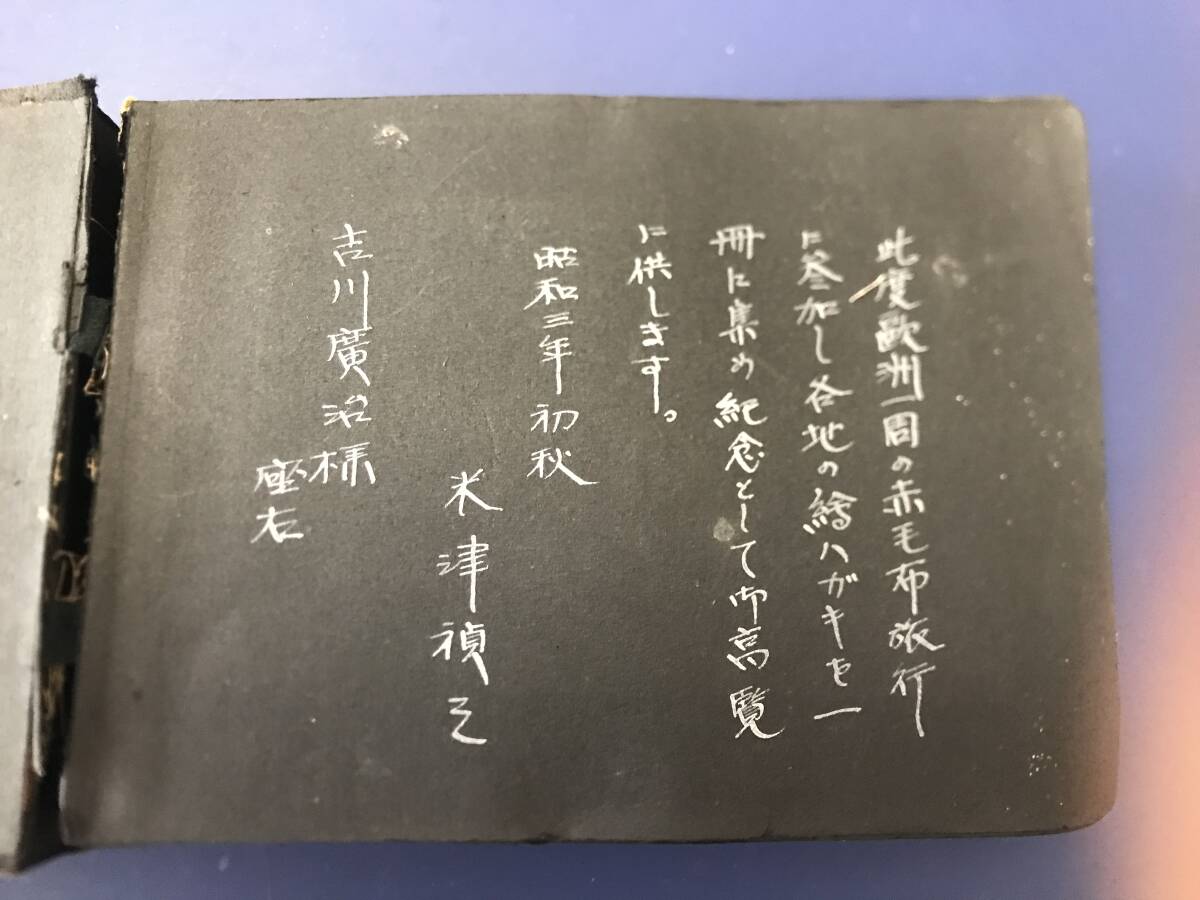 此度歐洲一周の赤毛布旅行
に参加し各地の繪ハガキを一
冊に集め紀念として御高覧
に供します。
昭和三年初秋
米津禎三
吉川廣治様
座右